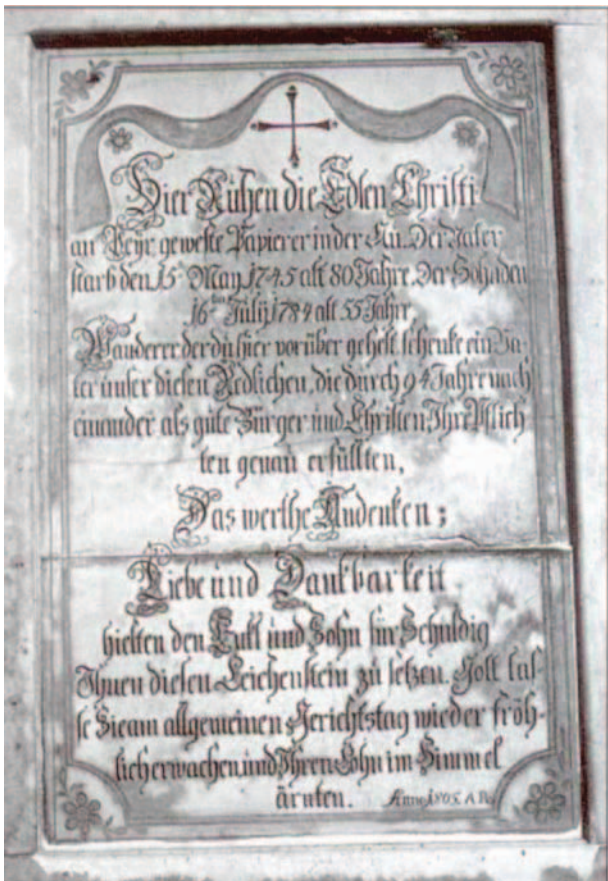 Hier Ruhen die Edlen Christi
an Peyr geweste Papierer in der Au. Der Vater
starb den 15ten May 1745 alt 80 Jahre. Der Sohn den
16ten Julij 1784 alt 55 Jahr.
Wanderer der du hier vorüber gehest schenke ein Va-
ter unser diesen Redlichen, die durch 94 Jahre nach
einander als gute Bürger und Christen Ihre Pflich
ten genau erfüllten,
Das werthe Andenken;
Liebe und Dankbarkeit
hielten den und Sohn für Schuldig
Ihnen diesen Leichenstein zu setzen. Gott las-
se Sie am allgemeinen Gerichtstag wieder fröh-
lich erwachen und Ihren Lohn im Himmel
ärnten. Anno 1805.